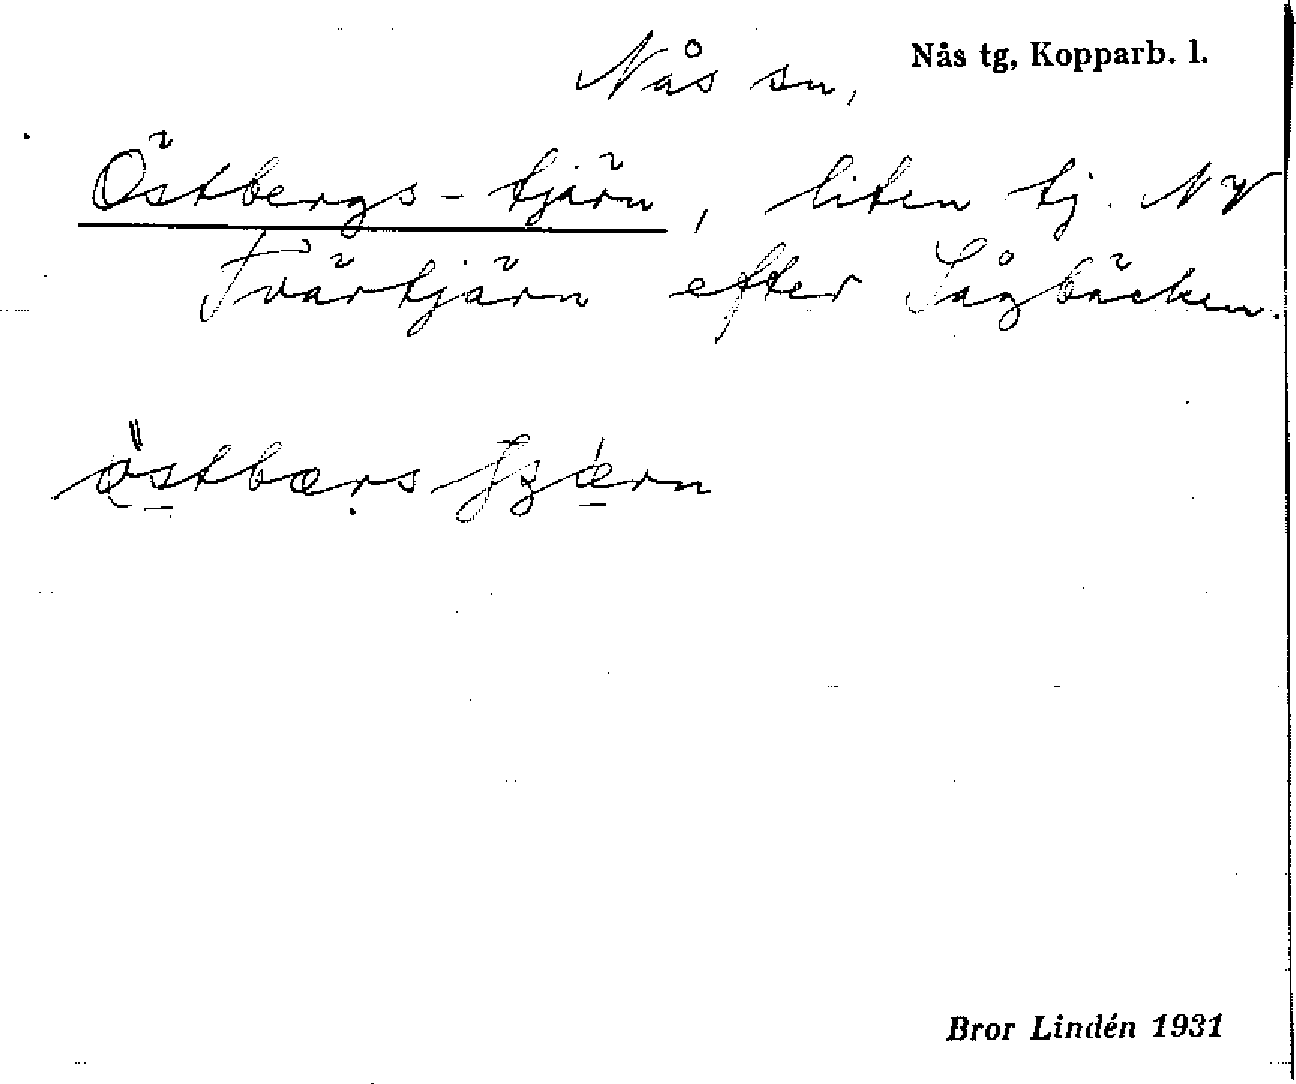 Nås tg, Kopparb. l.
Nås sn,
Östbergs-tjärn, liten tj. NV
Tvärtjärn efter Sågbäcken.
Bror Lindén 1931